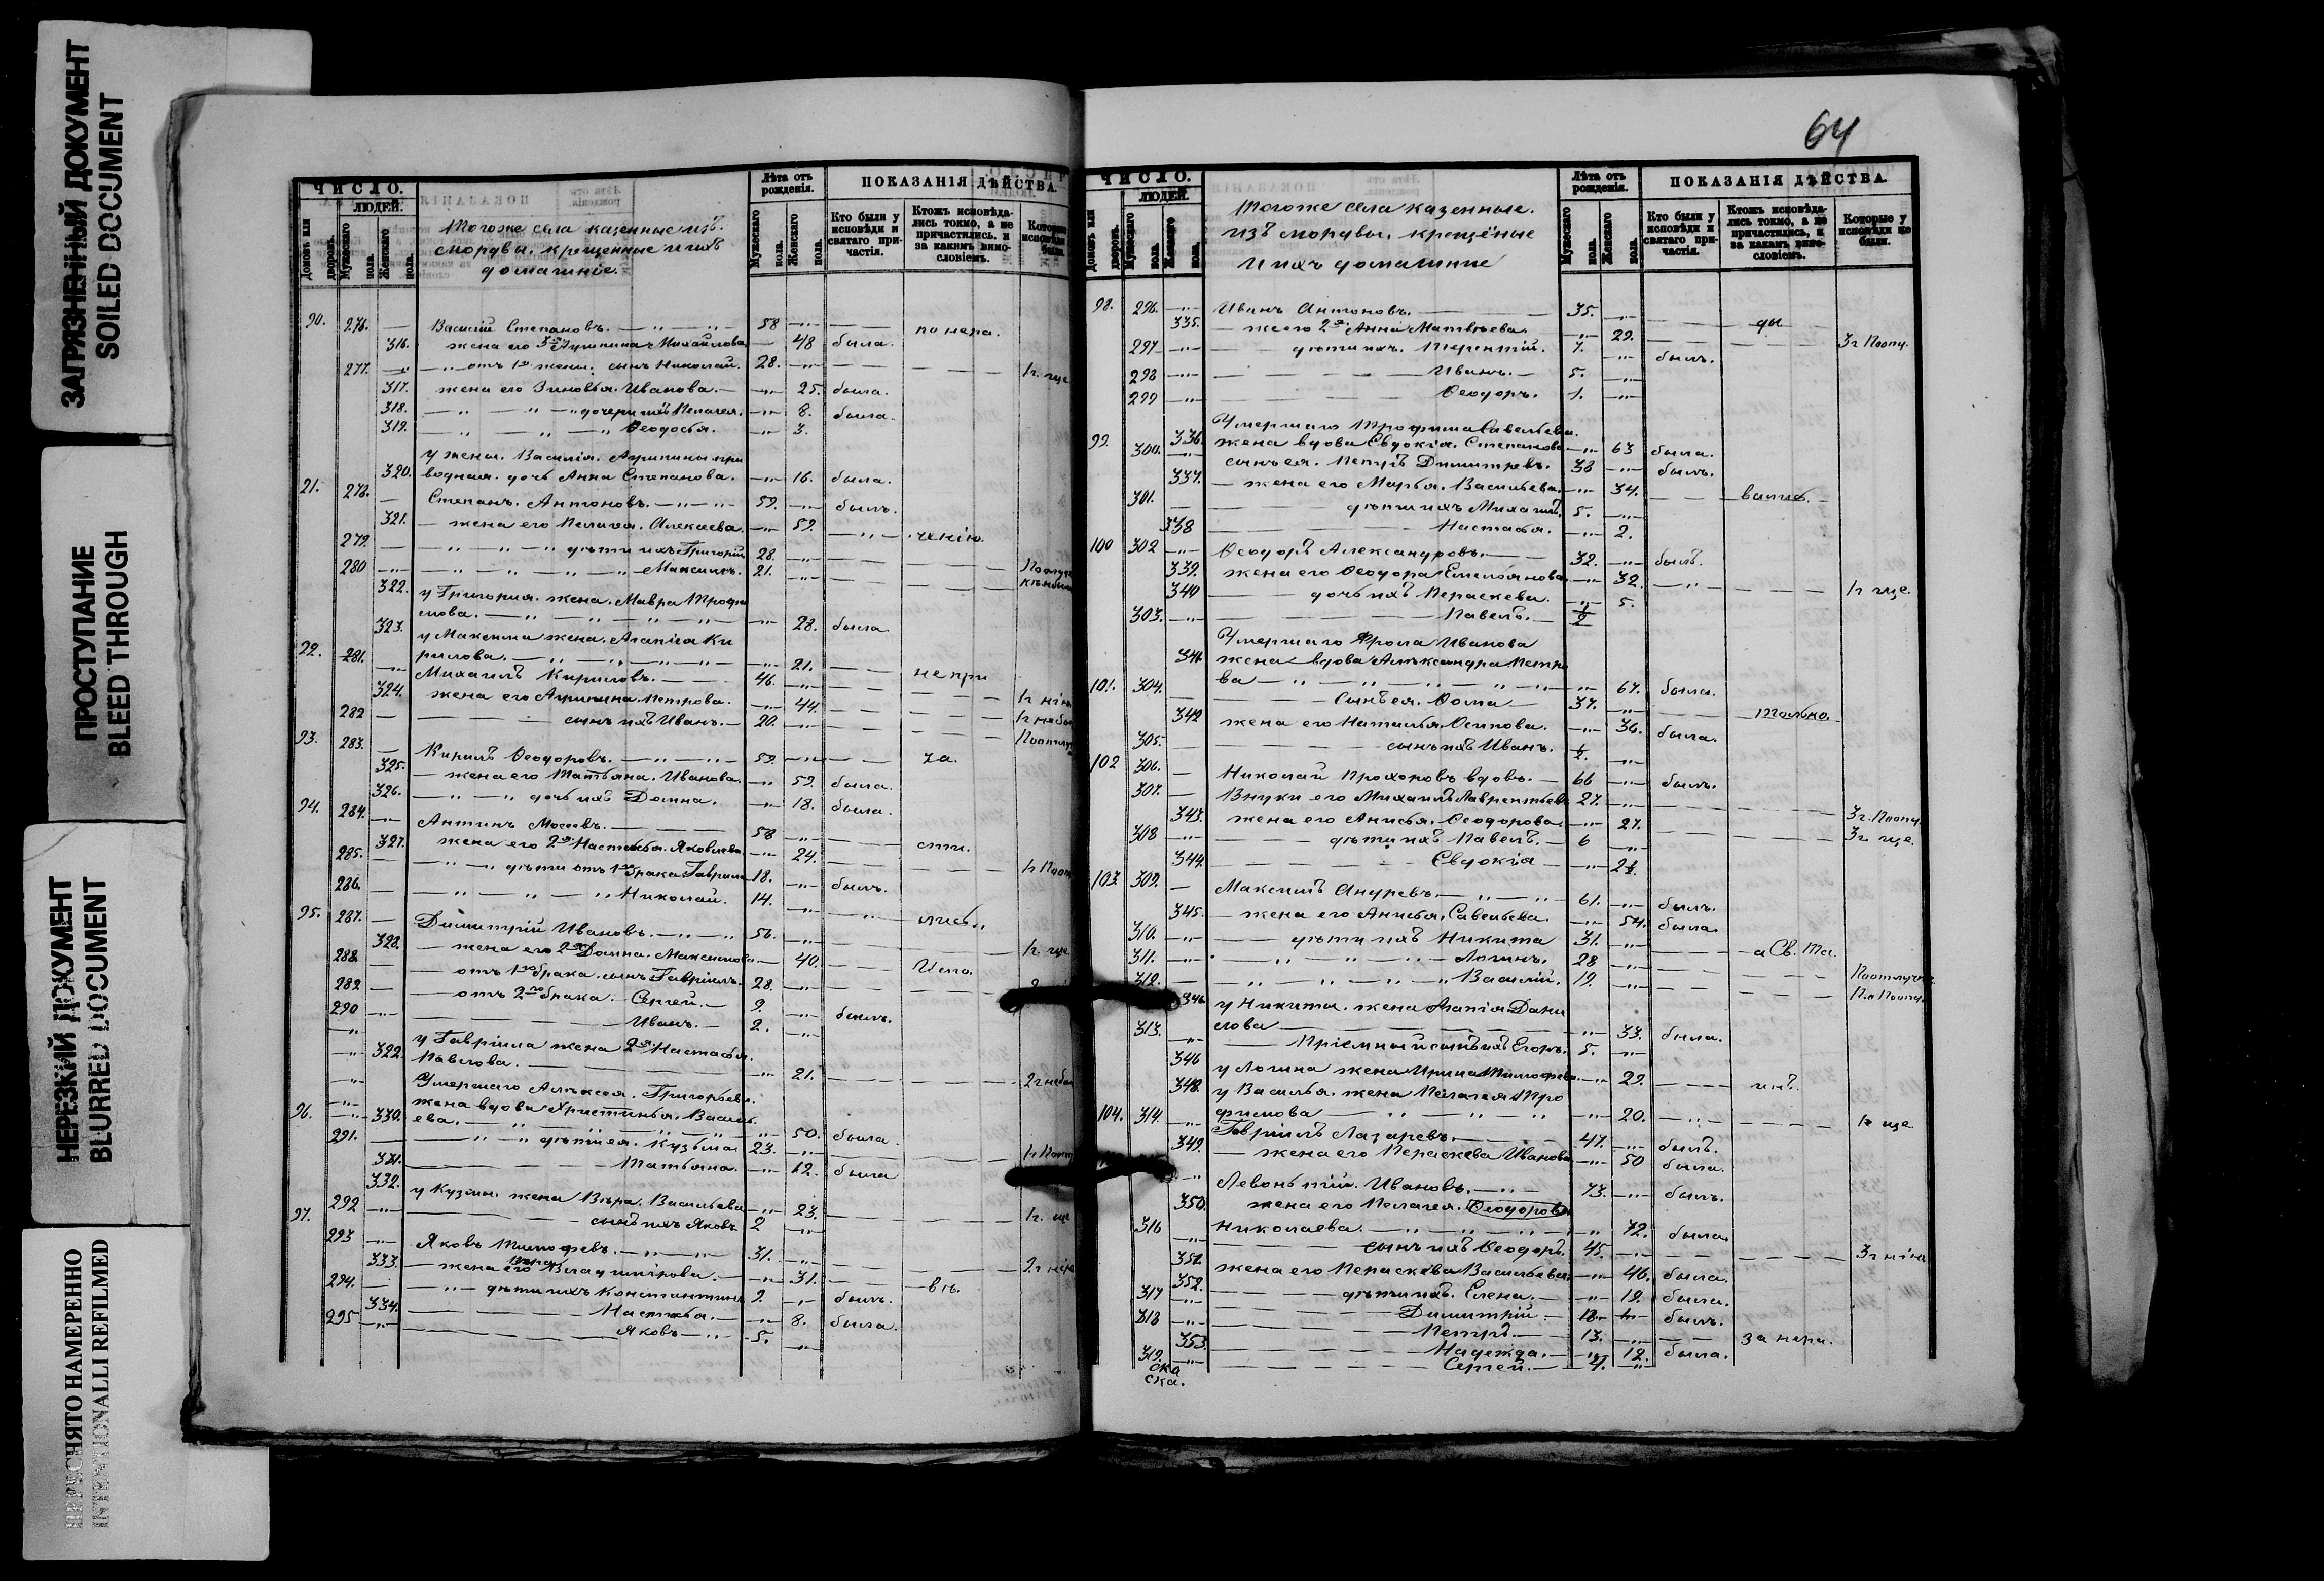 ЗАГРЯЗНЕННЫЙ ДОКУМЕНТ
SOILED DOCUMENT
ПРОСТУПАНИЕ
BLEED THROUGH
НЕРЕЗКИЙ ДОКУМЕНТ
BLURRED DOCUMENT
ПЕРЕСНЯТО НАМЕРЕННО
INTENTIONALLI REFILMED
ЧИСЛО.
ЛЮДЕЙ.
Домовъ или дворовъ.
Мужескаго пола.
Женскаго пола.
Тогоже села казенные изъ
мордвы, крещенные и ихъ
домашніе
Лѣта отъ рожденія.
Мужескаго пола.
Женскаго пола.
ПОКАЗАНІЯ ДѢЙСТВА.
Кто были у исповѣди и святаго причастія.
Ктожъ исповѣдались токмо, а не причастились, и за какимъ винословіемъ.
90. 276. Василій Степановъ. 58 по нера.
316. жена его 3я Агрипина Михайлова 48 была.
277. отъ 1й жены сынъ Николай. 28.
317. жена его Зиновья Иванова. 25. была.
318. дочери ихъ Пелагея. 8. была.
319. Ѳеодосья. 3.
у жены Василія Агрипины при
320. водная дочь Анна Степанова. 16. была.
278. Степанъ Антоновъ. 59. былъ.
321. жена его Пелагея Алексеева. 59. ченію
279. дѣти ихъ Григорій 28.
280 Максимъ. 21.
322. у Григорія жена Мавра Трофи
мова. 28. была
323. у Максима жена Агапіа Ки
рилова. 21.
281. Михаилъ Кириловъ. 46. не при
324. жена его Агрипина Петрова. 44.
282 сынъ ихъ Иванъ. 20.
93. 283. Кирилъ Ѳеодоровъ. 59. ча.
325. жена его Татьяна Иванова. 59. была.
326. дочь ихъ Домна. 18. была.
94. 284. Антипъ 58 сти.
327. жена его 2я Настасья Яковлева 24.
285. дѣти отъ 1го брака Гавріилъ 18. былъ.
286. Николай. 14.
95. 287. Димитрій Ивановъ. 56. лись
328. жена его 2я Домна Максимова 40.
288. отъ 1го брака сынъ Гавріилъ. 28.
289 отъ 2го брака Сергей. 9. былъ.
290 Иванъ. 2.
у Гавріила жена 2я Настасья
Павлова. 21.
Умершаго Алексея Григорьева
жена вдова Христинья Василь
96. 330. ева. 50. была.
291. дѣти ея Кузьма 23.
331. Татьяна. 12. была
332. у Кузмы жена Вѣра Васильева 23.
292 сынъ ихъ Яковъ 2
97. 293 Яковъ Тимофевъ. 31.
333. жена его Владимірова. 31. въ.
294. дѣти ихъ Константинъ 9. былъ.
334. Настасья. 8. была.
295 Яковъ 5.
64
ЧИСЛО.
ЛЮДЕЙ.
Домовъ или дворовъ.
Мужескаго пола.
Женскаго пола.
Тогоже села казенные
изъ мордвы, крещёные
и ихъ домашніе
Лѣта отъ рожденія.
Мужескаго пола.
Женскаго пола.
ПОКАЗАНІЯ ДѢЙСТВА.
Кто были у исповѣди и святаго причастія.
Ктожъ исповѣдались токмо, а не причастились, и за какимъ винословіемъ.
Которые у исповѣди не были.
98. 296. Иванъ Антоновъ. 35. ды
335. же его 2я Анна Матвѣева. 29.
297 дѣти ихъ Терентій. 7. былъ.
298 Иванъ. 5.
299 Ѳеодоръ. 1.
Умершаго Трофима Савельева
99 336. жена вдова Евдокія Степанова 63 была.
300. сынъ ея Петръ Димитревъ. 38 былъ.
337. жена его Марья Васильева. 34.
301. дѣти ихъ Михаилъ. 5.
338 Настасья. 2.
100 302 Ѳеодоръ Александровъ. 32. былъ.
339. жена его Ѳеодора Емельянова 32.
340 дочь ихъ Параскева. 5.
303. Павелъ. ½
Умершаго Фрола Иванова
341. жена вдова Александра Петро
ва 67. была.
101. 304. Сынъ ея Ѳома 37. только.
342 жена его Наталья Осипова. 36. была.
305. сынъ ихъ Иванъ. ½.
102 306. Николай Прохоровъ вдовъ. 66 былъ.
307. Внуки его Михаилъ Лаврентьевъ 27.
343. жена его Анисья Ѳеодорова. 27.
308 дѣти ихъ Павелъ. 6
344. Евдокія 2½.
103. 309. Максимъ Андревъ 61. былъ.
345. жена его Анисья Савельева. 54. была.
310. дѣти ихъ Никита 31. а Св. Та.
311. Логинъ. 28
312. Василій. 19.
346. у Никиты жена Агапія Дани
лова 33. была.
313. Пріемный сынъ ихъ Егоръ. 5.
346 у Логина жена Ирина Тимофева 29.
348. у Василья жена Пелагея Тро
фимова 20.
104. 314. Гавріилъ Лазаревъ. 47. былъ.
349. жена его Параскева Иванова 50 была.
Левонтій Ивановъ. 73. былъ.
350. жена его Пелагея Ѳеодорова
Николаева. 72. была.
316 сынъ ихъ Ѳеодоръ. 45.
351. жена его Параскева Васильева 46. была.
352. дѣти ихъ Елена. 19. была.
317 Димитрій 18 былъ.
318 Петръ. 13. за нера.
353. Надежда. 12. была.
319. Сергей. 4.